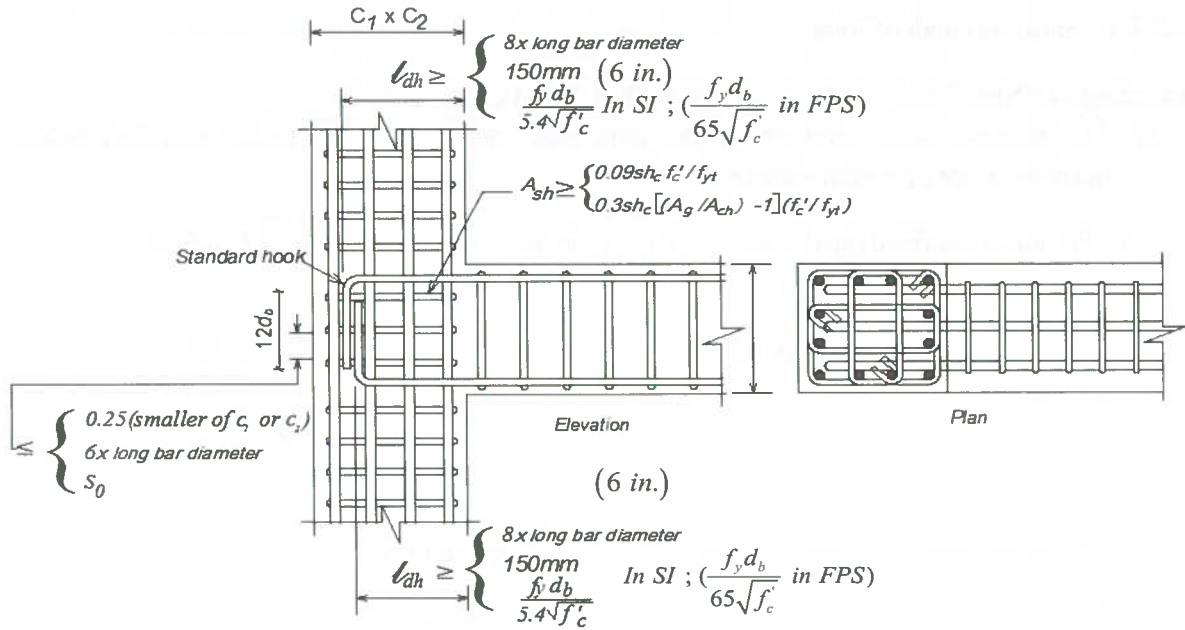 C₁ x C₂
ℓdh ≥ { 8x long bar diameter
150mm (6 in.)
fy db / 5.4√f'c In SI ; (fy db / 65√f'c in FPS)
Ash ≥ { 0.09shc fc'/fyt
0.3shc [(Ag /Ach) -1](fc'/fyt)
Standard hook
12db
≤ { 0.25(smaller of c, or c₂)
6x long bar diameter
S₀
Elevation
Plan
(6 in.)
ℓdh ≥ { 8x long bar diameter
150mm
fy db / 5.4√f'c In SI ; (fy db / 65√f'c in FPS)